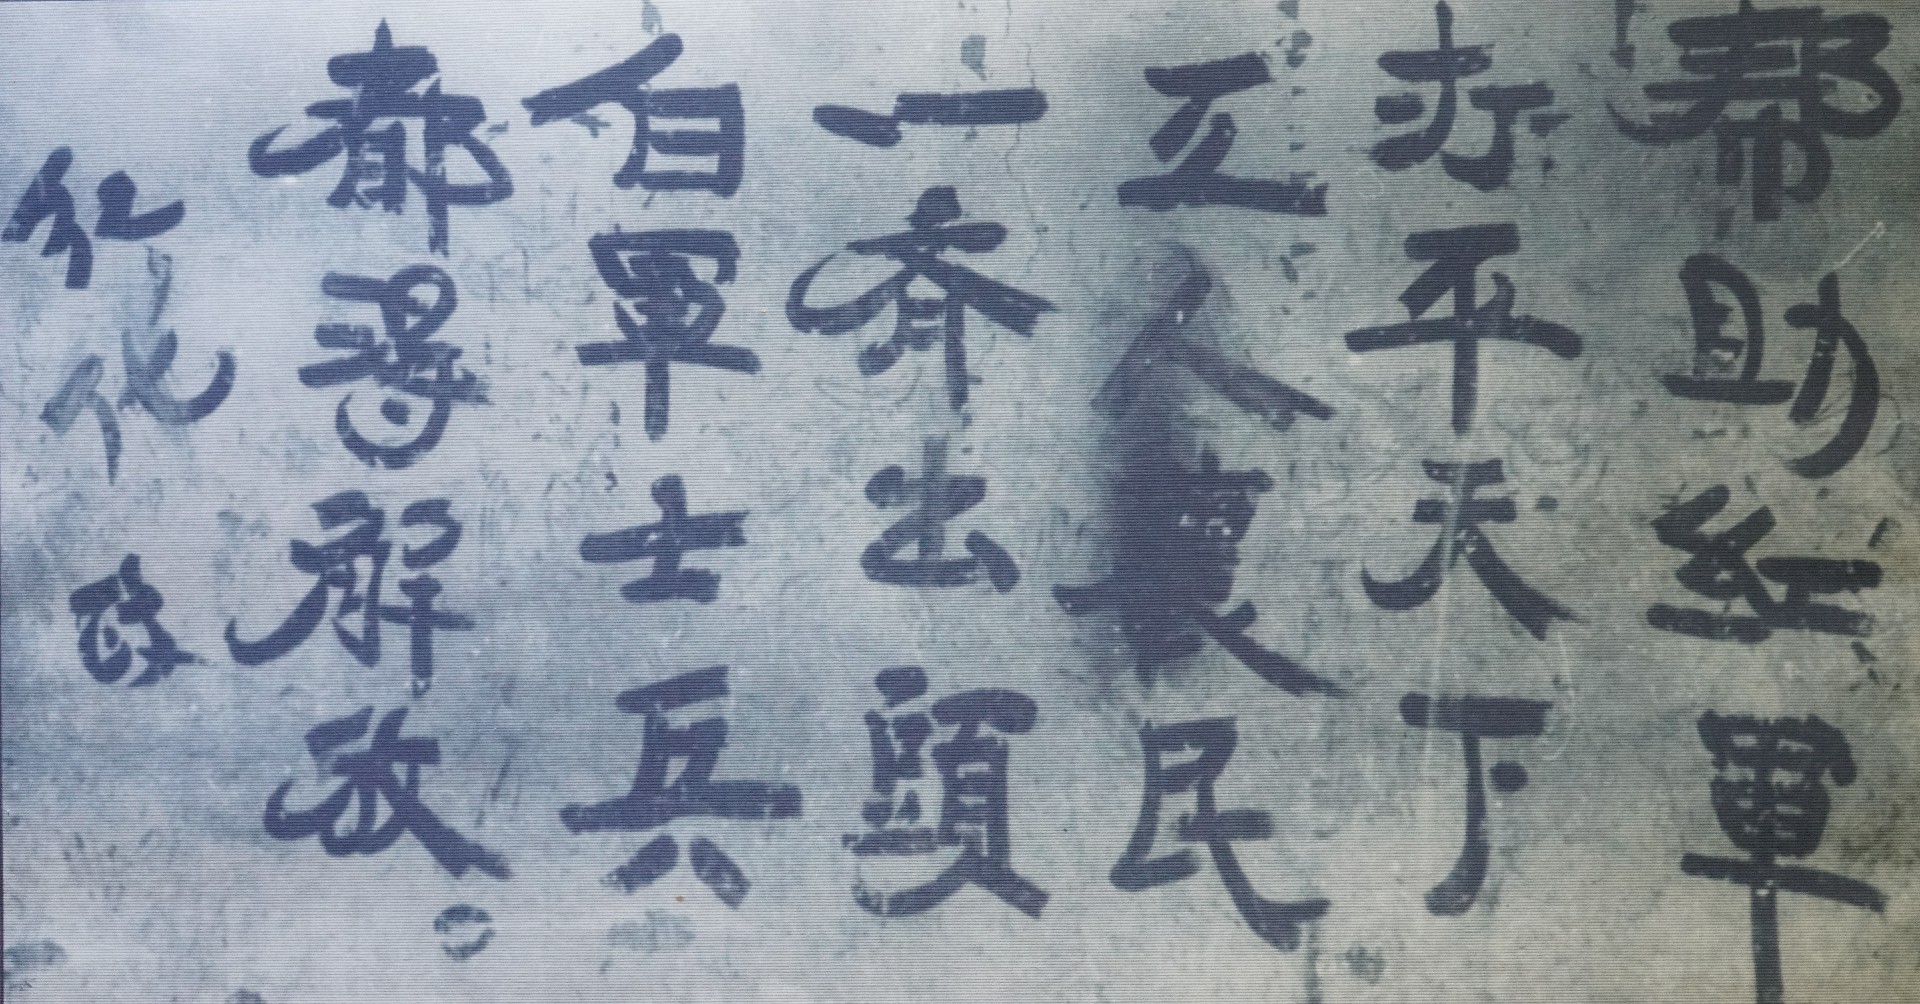 帮助紅軍
打平天下
工人農民
一齐出頭
白軍士兵
都得解放。
紅化政